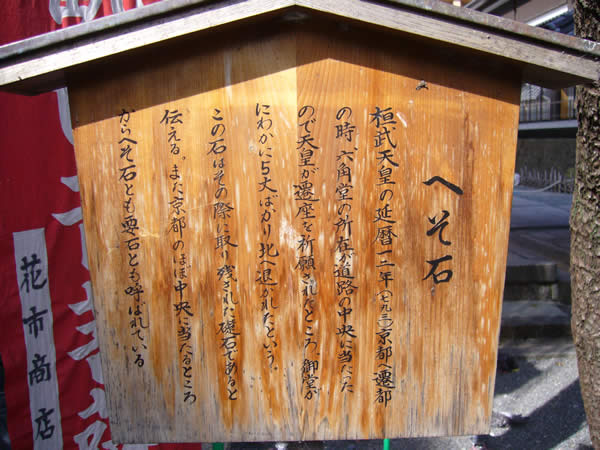 へそ石
桓武天皇の延暦十二年(七九三)京都へ遷都
の時六角堂の所在が道路の中央に当たった
ので天皇が遷座を祈願されたところ、御堂が
にわかに5丈ばかり北へ退かれたという。
この石はその際に取り残された礎石であると
伝える。また京都のほぼ中央に当たるところ
からへそ石とも要石とも呼ばれている
花市商店